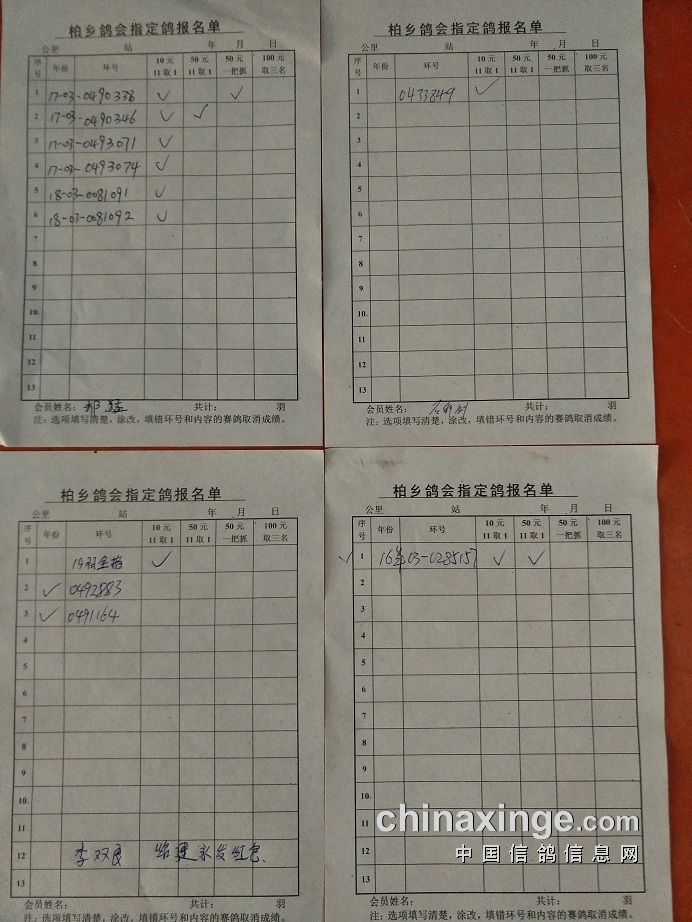 柏乡鸽会指定鸽报名单
公里 站 年 月 日
序号 年份 环号 10元 11取1 50元 11取1 50元 一把抓 100元 取三名
1 17-03-0490338 ✓ ✓
2 17-03-0490346 ✓ ✓
3 17-03-0493071 ✓
4 17-03-0493074 ✓
5 18-03-0081091 ✓
6 18-03-0081092 ✓
7
8
9
10.
11
12
13
会员姓名： 共计： 羽
注：选项填写清楚，涂改，填错环号和内容的赛鸽取消成绩。
柏乡鸽会指定鸽报名单
公里 站 年 月 日
序号 年份 环号 10元 11取1 50元 11取1 50元 一把抓 100元 取三名
1 0433849 ✓
2
3
4
5
6
7
8
9
10.
11
12
13
会员姓名： 共计： 羽
注：选项填写清楚，涂改，填错环号和内容的赛鸽取消成绩。
柏乡鸽会指定鸽报名单
公里 站 年 月 日
序号 年份 环号 10元 11取1 50元 11取1 50元 一把抓 100元 取三名
1 19羽全指 ✓
2 ✓ 0492883
3 ✓ 0491164
4
5
6
7
8
9
10.
11
12 李双良 发红包
13
会员姓名： 共计： 羽
注：选项填写清楚，涂改，填错环号和内容的赛鸽取消成绩。
柏乡鸽会指定鸽报名单
公里 站 年 月 日
序号 年份 环号 10元 11取1 50元 11取1 50元 一把抓 100元 取三名
✓ 1 03-0285157 ✓ ✓
2
3
4
5
6
7
8
9
10.
11
12
13
会员姓名： 共计： 羽
注：选项填写清楚，涂改，填错环号和内容的赛鸽取消成绩。
chinaxinge.com
中国信鸽信息网